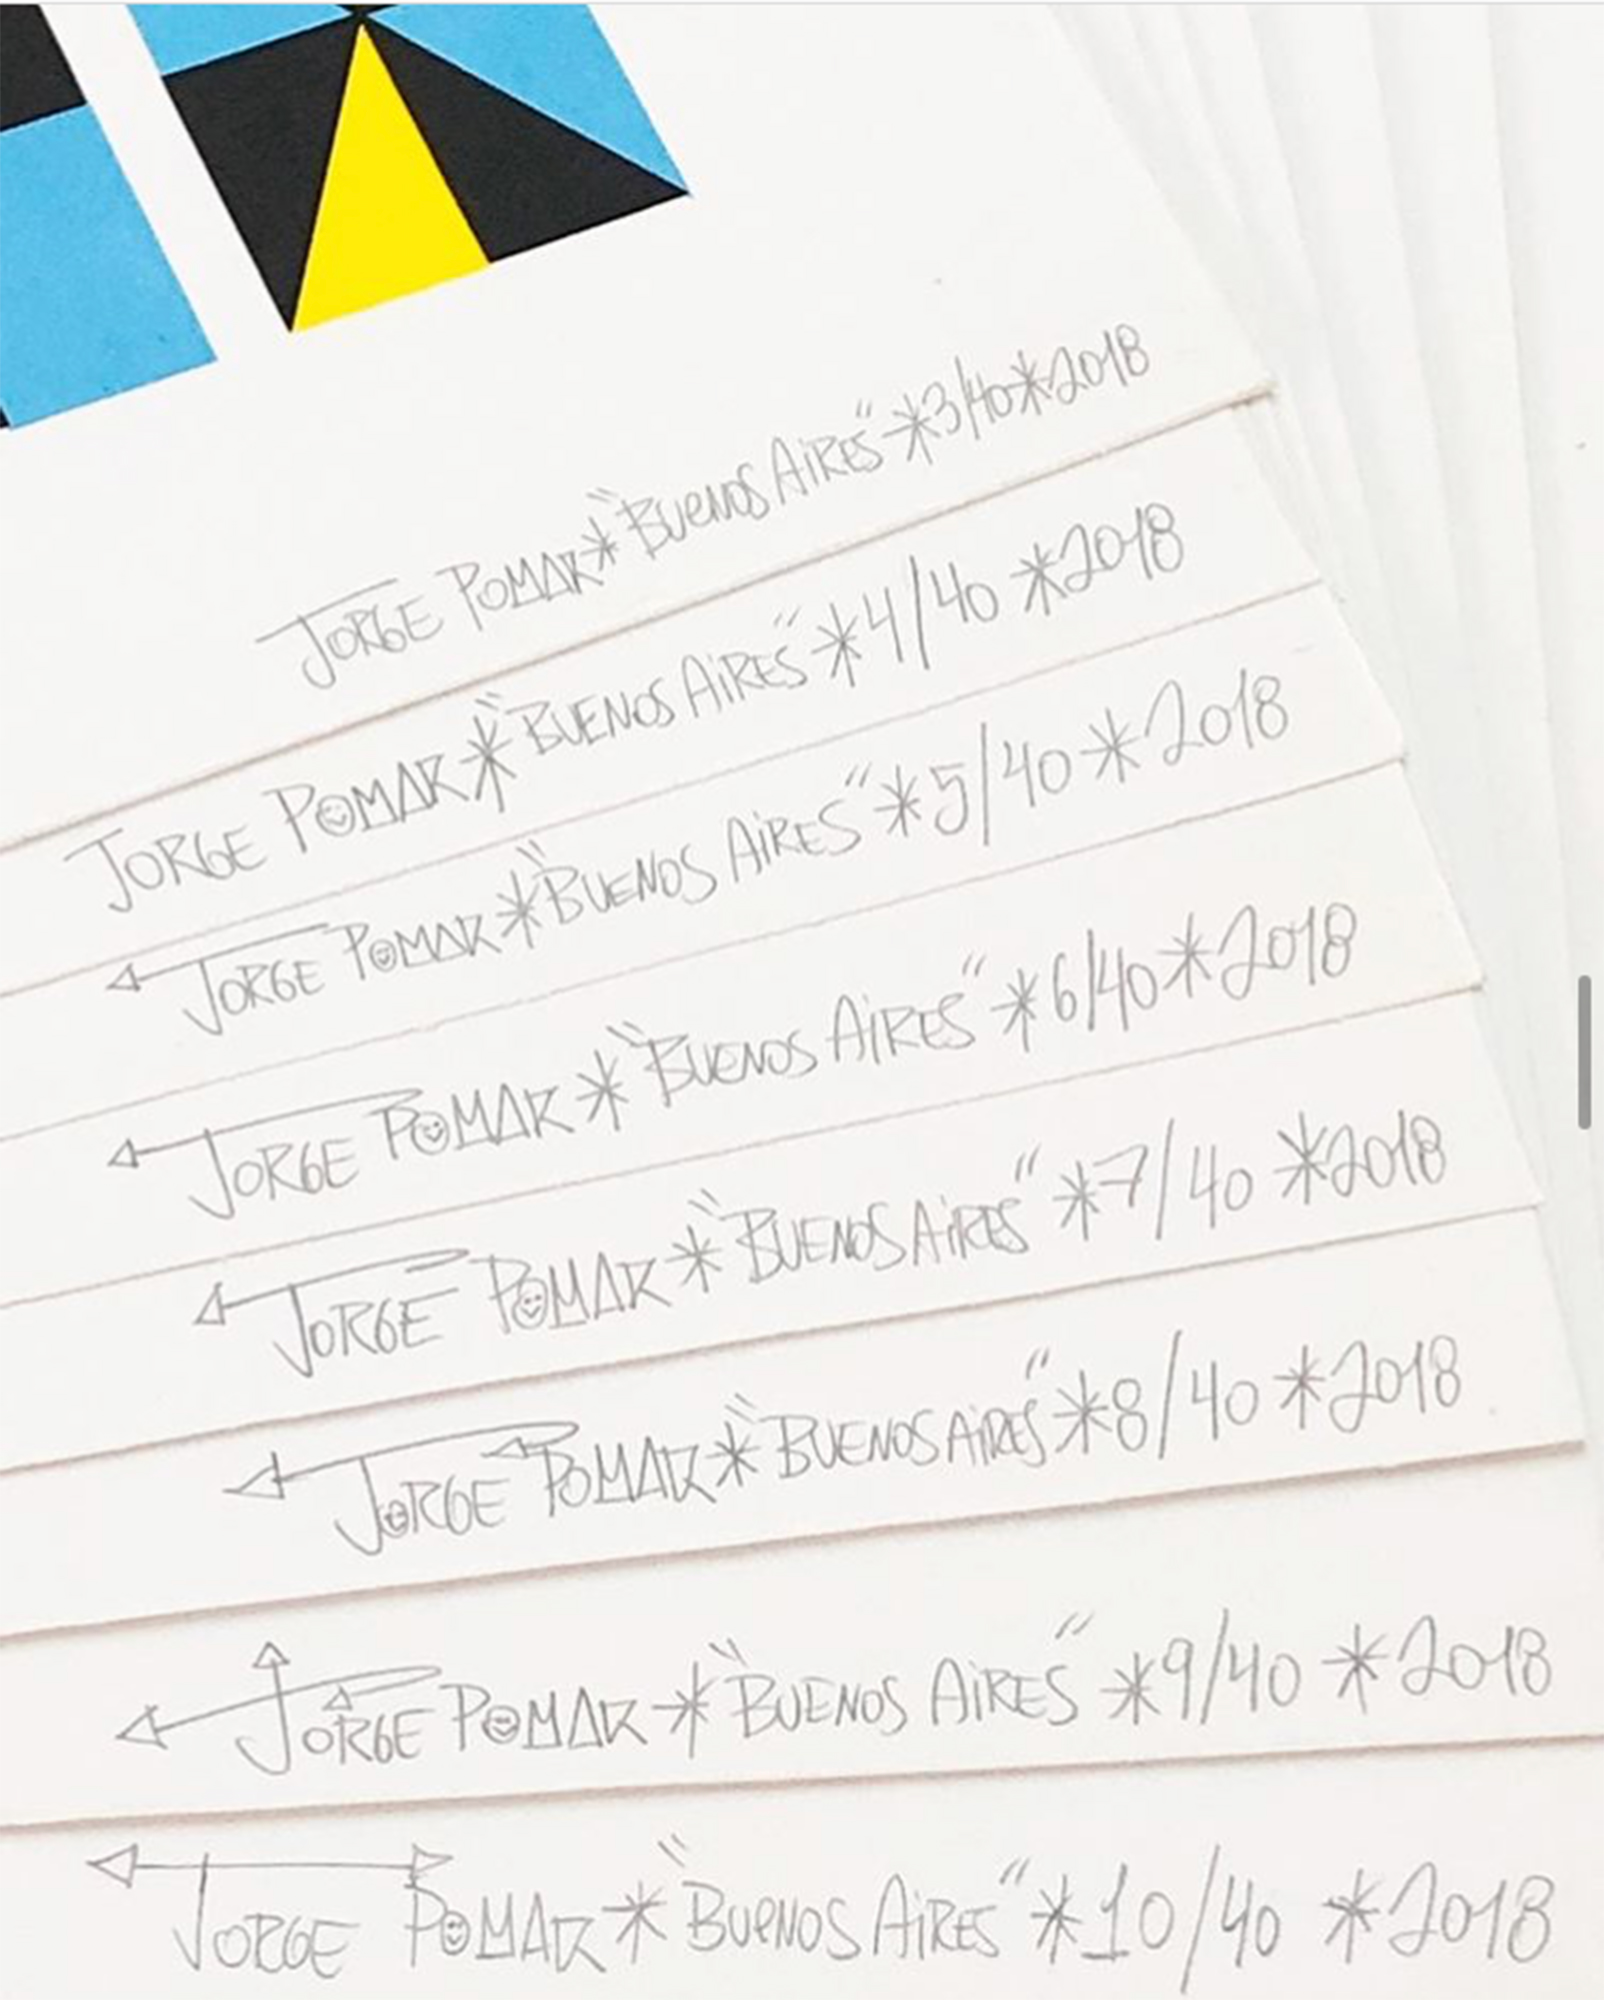 JORGE POMAR * "BUENOS AIRES" * 3/40 * 2018
JORGE POMAR * "BUENOS AIRES" * 4/40 * 2018
JORGE POMAR * "BUENOS AIRES" * 5/40 * 2018
JORGE POMAR * "BUENOS AIRES" * 6/40 * 2018
JORGE POMAR * "BUENOS AIRES" * 7/40 * 2018
JORGE POMAR * "BUENOS AIRES" * 8/40 * 2018
JORGE POMAR * "BUENOS AIRES" * 9/40 * 2018
JORGE POMAR * "BUENOS AIRES" * 10/40 * 2018